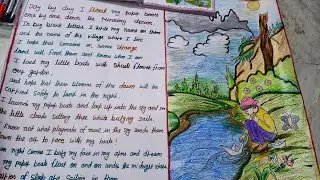 Day by day I float my paper boats
one by one down the running stream.
In big black letters I write my name on them
and the name of the village where I live
I hope that someone in some strange
land will find them and know who I am
I load my little boats with shiuli flowers from
my garden,
and hope that these blooms of the dawn will be
carried safely to land in the night.
I launch my paper boats and look up into the sky and see
the little clouds setting their white bulging sails.
know not what playmate of mine in the sky sends them
down the air to race with my boats!
night comes I bury my face in my arms and dream
my paper boats float on and on under the midnight stars
of sleep are sailing in them